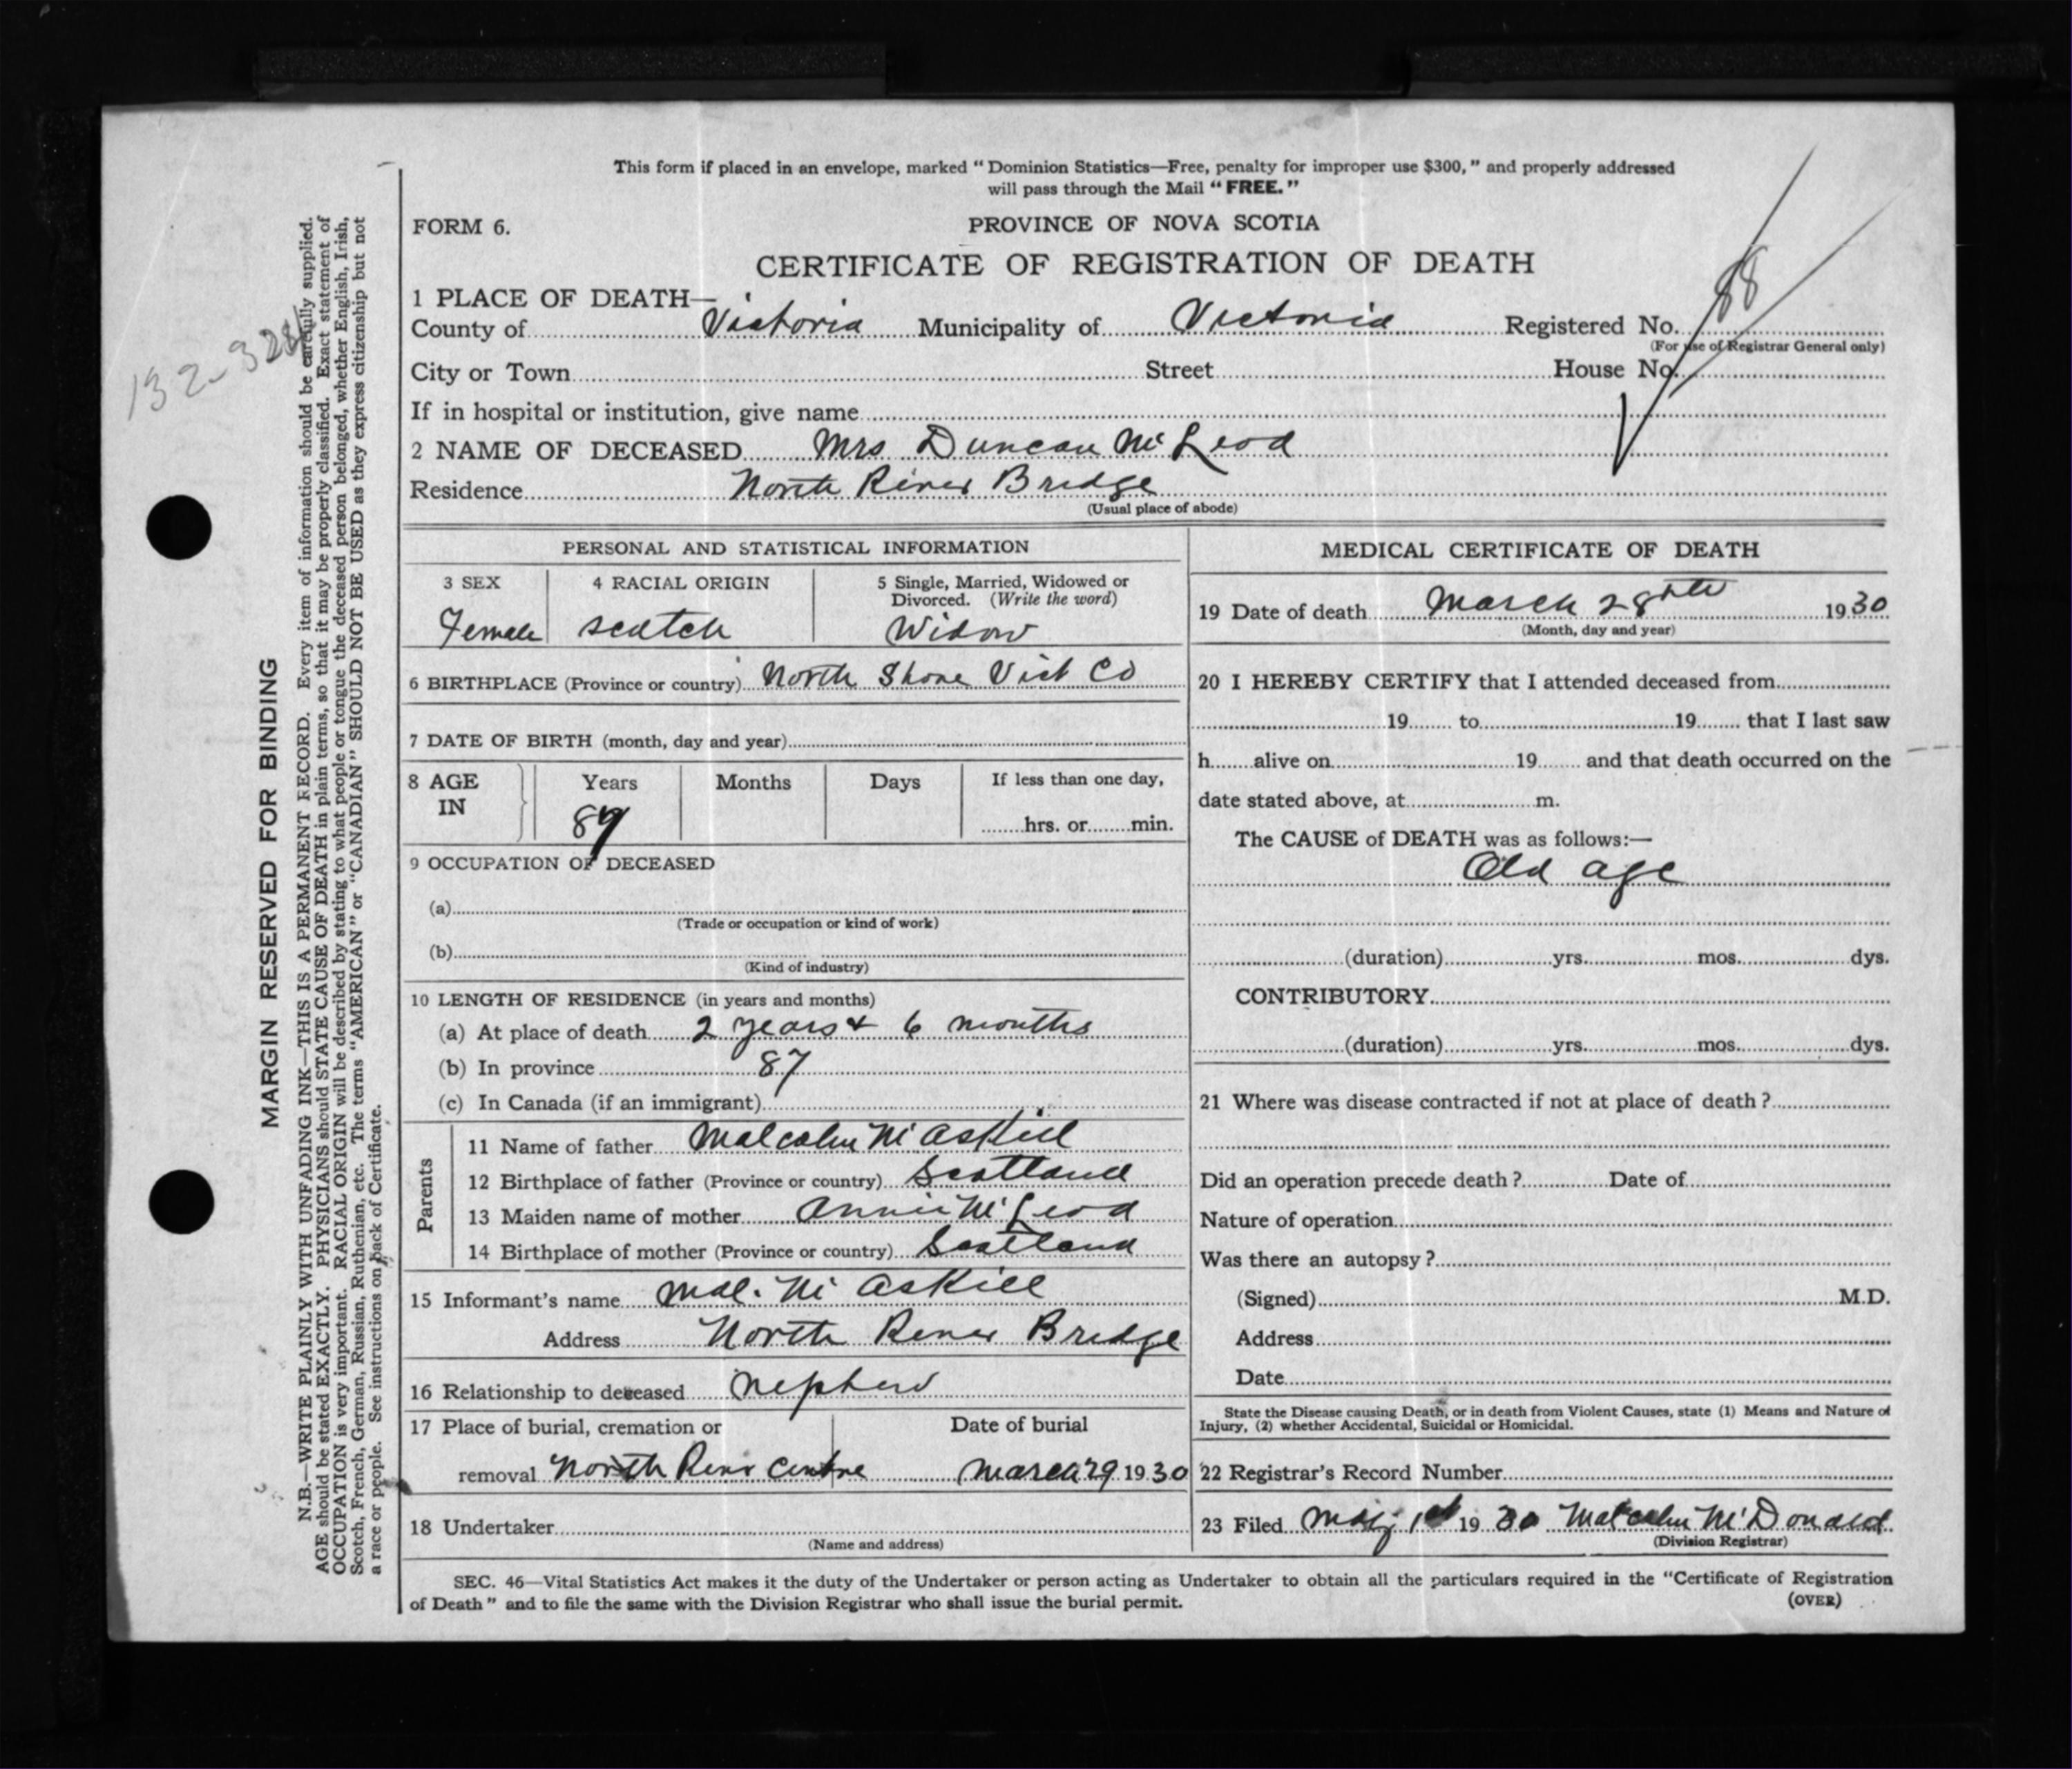 This form if placed in an envelope, marked “Dominion Statistics—Free, penalty for improper use $300,” and properly addressed
will pass through the Mail “FREE.”
FORM 6.
PROVINCE OF NOVA SCOTIA
CERTIFICATE OF REGISTRATION OF DEATH
1 PLACE OF DEATH—
County of Victoria Municipality of Victoria Registered No. 88
(For use of Registrar General only)
City or Town Street House No.
If in hospital or institution, give name
2 NAME OF DECEASED Mrs Duncan McLeod
Residence North River Bridge
(Usual place of abode)
PERSONAL AND STATISTICAL INFORMATION
3 SEX 4 RACIAL ORIGIN 5 Single, Married, Widowed or
Divorced. (Write the word)
Female scotch Widow
6 BIRTHPLACE (Province or country) North Shore Vict Co
7 DATE OF BIRTH (month, day and year)
8 AGE IN Years Months Days If less than one day,
87 hrs. or min.
9 OCCUPATION OF DECEASED
(a)
(Trade or occupation or kind of work)
(b)
(Kind of industry)
10 LENGTH OF RESIDENCE (in years and months)
(a) At place of death 2 years + 6 months
(b) In province 87
(c) In Canada (if an immigrant)
Parents
11 Name of father Malcolm McAskill
12 Birthplace of father (Province or country) Scotland
13 Maiden name of mother Annie McLeod
14 Birthplace of mother (Province or country) Scotland
15 Informant's name Mal. McAskill
Address North River Bridge
16 Relationship to deceased Nephew
17 Place of burial, cremation or Date of burial
removal North River Centre March 29 1930
18 Undertaker
(Name and address)
MEDICAL CERTIFICATE OF DEATH
19 Date of death March 28th 1930
(Month, day and year)
20 I HEREBY CERTIFY that I attended deceased from
19 to 19 that I last saw
h alive on 19 and that death occurred on the
date stated above, at m.
The CAUSE of DEATH was as follows:—
Old age
(duration) yrs. mos. dys.
CONTRIBUTORY
(duration) yrs. mos. dys.
21 Where was disease contracted if not at place of death ?
Did an operation precede death ? Date of
Nature of operation
Was there an autopsy ?
(Signed) M.D.
Address
Date
State the Disease causing Death, or in death from Violent Causes, state (1) Means and Nature of
Injury, (2) whether Accidental, Suicidal or Homicidal.
22 Registrar's Record Number
23 Filed May 1st 1930 Malcolm McDonald
(Division Registrar)
SEC. 46—Vital Statistics Act makes it the duty of the Undertaker or person acting as Undertaker to obtain all the particulars required in the “Certificate of Registration
of Death” and to file the same with the Division Registrar who shall issue the burial permit.
(OVER)
MARGIN RESERVED FOR BINDING
N.B.—WRITE PLAINLY WITH UNFADING INK—THIS IS A PERMANENT RECORD. Every item of information should be carefully supplied.
AGE should be stated EXACTLY. PHYSICIANS should STATE CAUSE OF DEATH in plain terms, so that it may be properly classified. Exact statement of
OCCUPATION is very important. RACIAL ORIGIN will be described by stating to what people or tongue the deceased person belonged, whether English, Irish,
Scotch, French, German, Russian, Ruthenian, etc. The terms “AMERICAN” or “CANADIAN” SHOULD NOT BE USED as they express citizenship but not
a race or people. See instructions on back of Certificate.